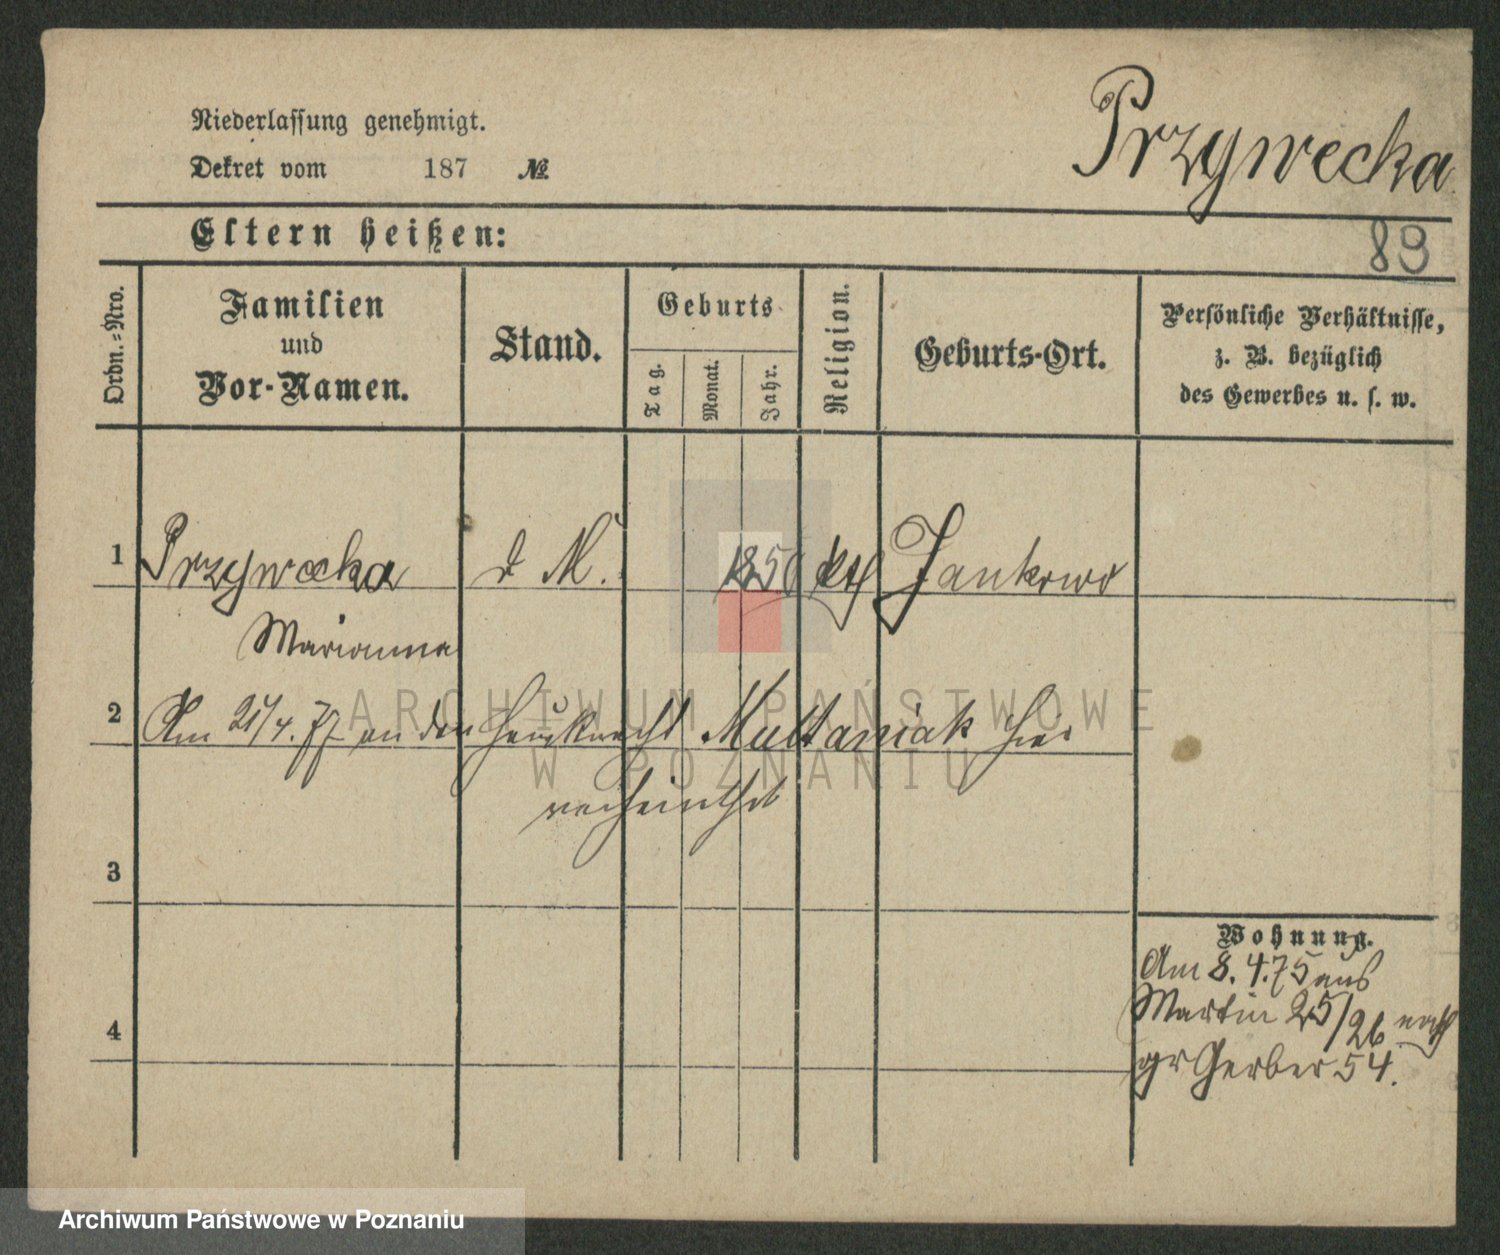 Niederlassung genehmigt.
Dekret vom 187 №
Przywecka
Eltern heißen:
89
Ordn.-Nro.
Familien
und
Vor-Namen.
Stand.
Geburts
Tag.
Monat.
Jahr.
Religion.
Geburts-Ort.
Persönliche Verhältnisse,
z. B. bezüglich
des Gewerbes u. s. w.
1 Przywecka d M. 1850 kth Jankowo
Marianna
2 Am 21/4. 77 an den Hausknecht Multaniak hier
verheirathet
3
4
Wohnung.
Am 8.4.75 aus
Martin 25/26 nach
gr Gerber 54.
ARCHIWUM PAŃSTWOWE
W POZNANIU
Archiwum Państwowe w Poznaniu